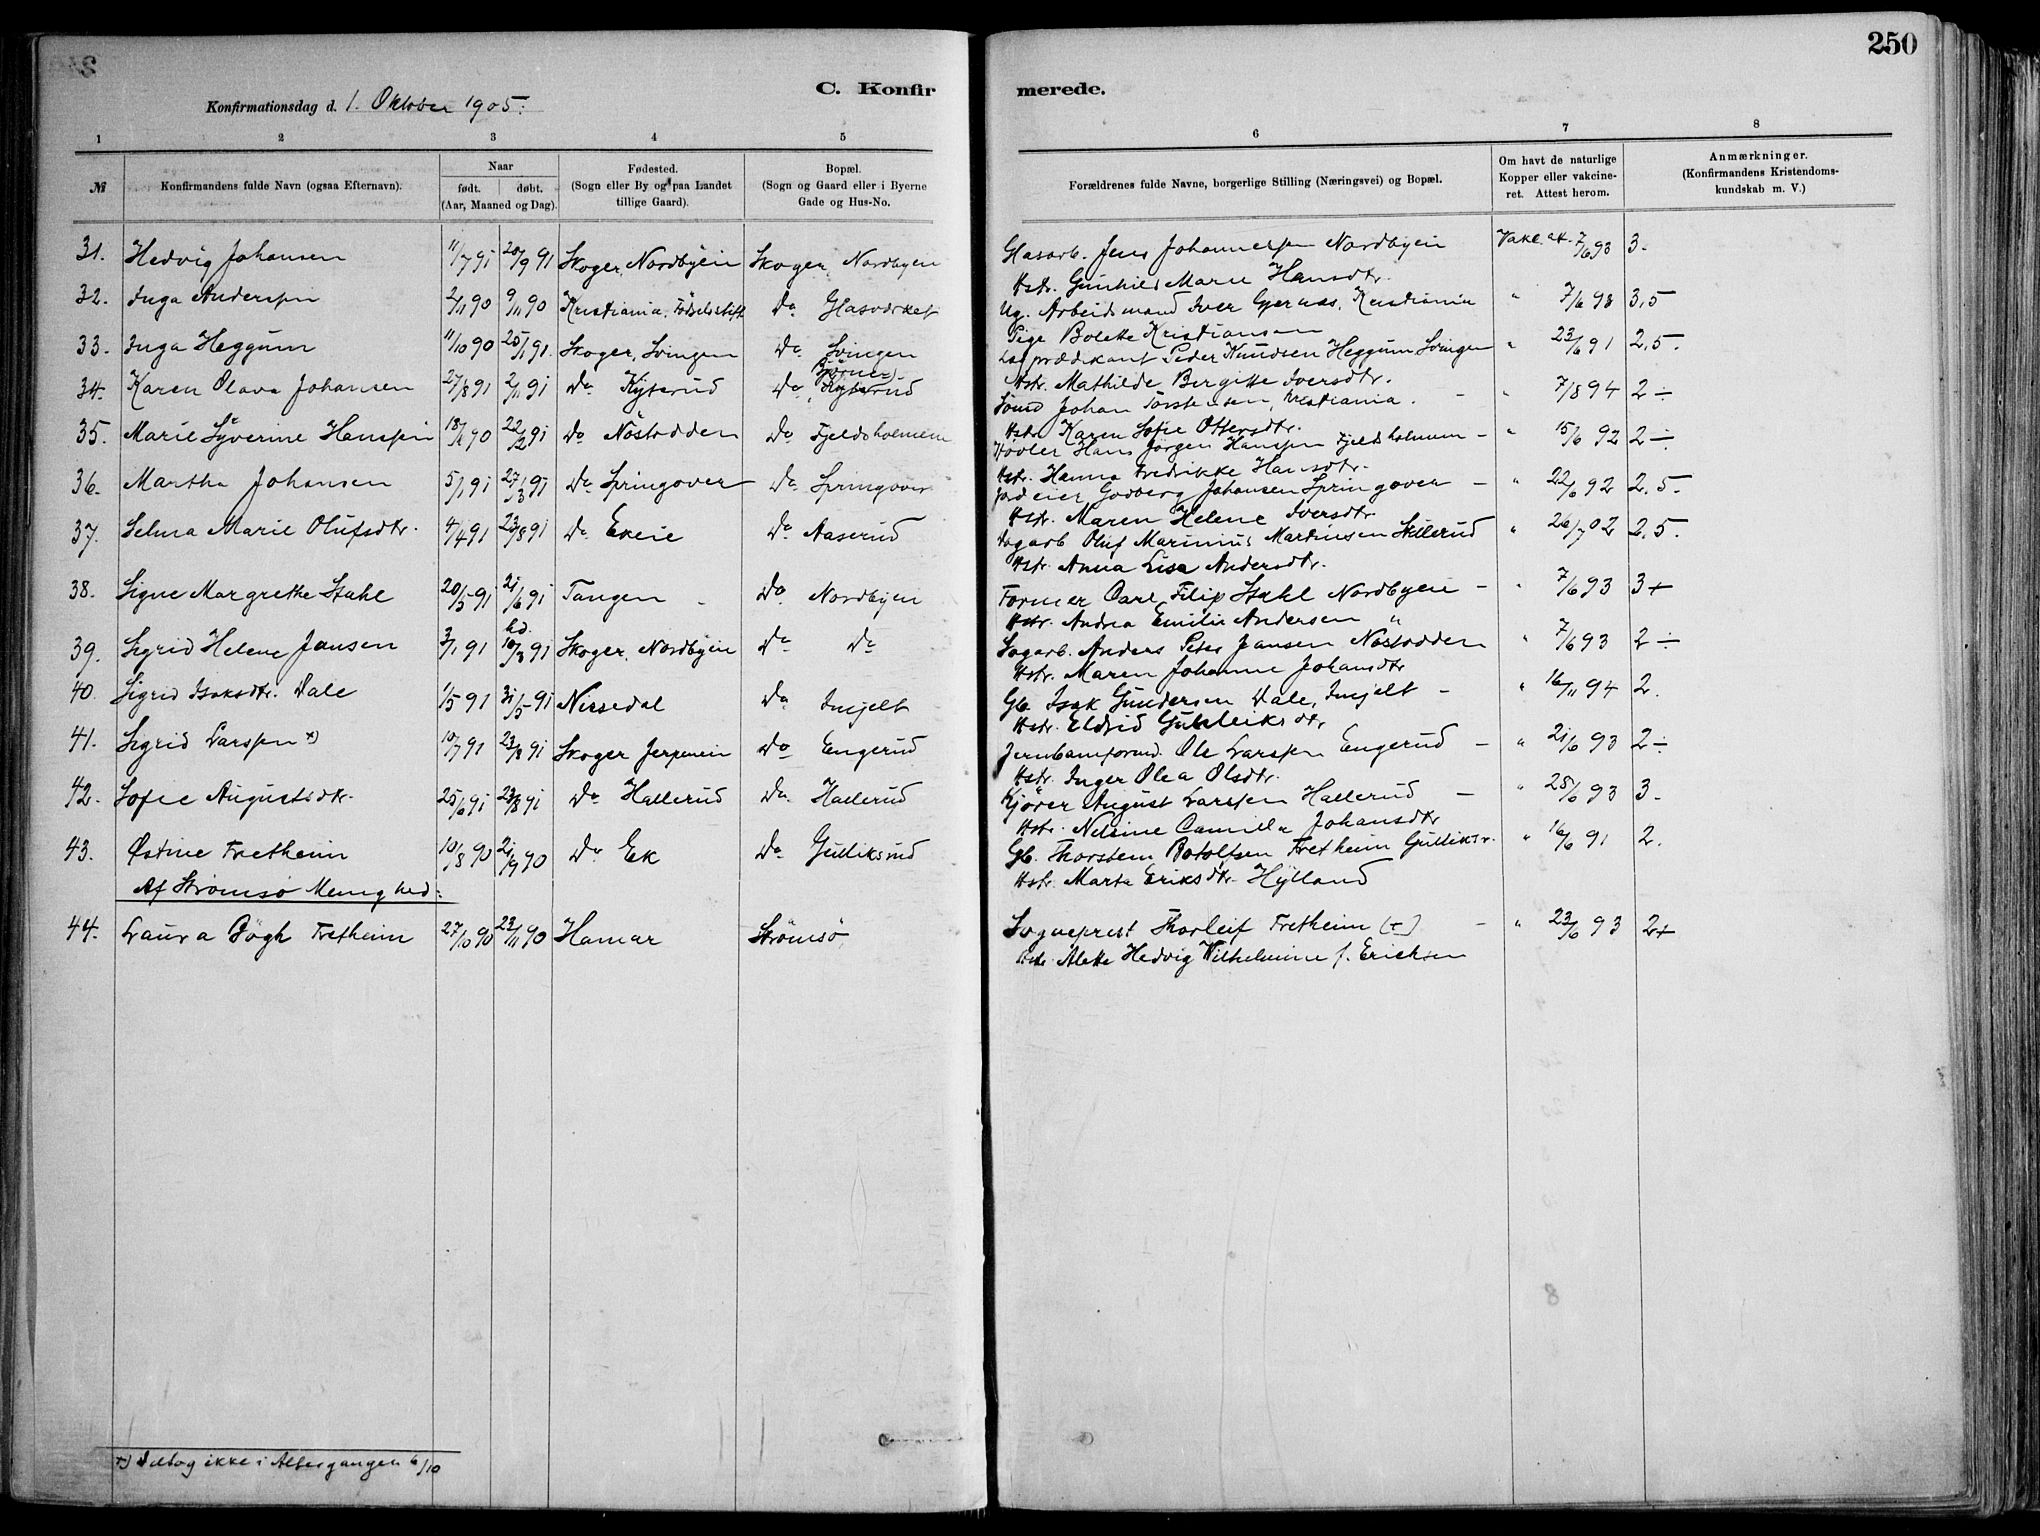 250
C. Konfir merede.
Konfirmationsdag d. 1. Oktober 1905.
1 2 3 4 5 6 7 8
№ Konfirmandens fulde Navn (ogsaa Efternavn). Naar født. døbt. (Aar, Maaned og Dag). Fødested. (Sogn eller By og paa Landet tillige Gaard). Bopæl. (Sogn og Gaard eller i Byerne Gade og Hus-No. Forældrenes fulde Navne, borgerlige Stilling (Næringsvei) og Bopæl. Om havt de naturlige Kopper eller vakcineret. Attest herom. Anmærkninger. (Konfirmandens Kristendomskundskab m. V.)
31. Hedvig Johansen 11/7 91 20/9 91 Skoger, Nordbyein Skoger, Nordbyen Glasarb. Jens Johannessen Nordbyein Vakc. at. 7/6 93 3.
Hstr. Gunhild Marie Hansdtr.
32. Inga Anderssen 2/11 90 9/11 90 Kristiania, Fødselsstift Do Glasværket Ug. Arbeidsmand Iver Gjernæs, Kristiania " 7/6 93 3,5
Pige Bolette Kristiansen
33. Inga Heggum 11/10 90 25/1 91. Skoger, Svingen Do Svingen Lægprædikant Peder Knudsen Heggum Svingen " 23/6 91 2,5.
Hstr. Mathilde Bergitte Iversdtr.
34. Karen Olava Johansen 27/8 91 2/11 91 Do Kyterud Do Kyterud Sømd Johan Torstensen, Kristiania. - " 7/8 94 2÷
Hstr. Karen Sofie Ottersdtr.
35. Marie Syverine Hanssen 18/12 90 22/2 91 Do Nöstodden Do Fjeldsholmene Høvler Hans Jörgen Hanssen Fjeldsholmen - " 15/6 92 2÷
Hstr. Hanna Fredrikke Hansdtr.
36. Martha Johansen 5/1 91 27/3 91 Do Springover Do Springover Jordeier Godberg Johansen Springover - " 22/6 92 2,5.
Hstr. Maren Helene Iversdtr.
37. Selma Marie Olufsdtr. 4/4 91 23/8 91 Do Exeie Do Aaserud Dagarb. Oluf Marinius Martinsen Skillerud " 26/7 02 2,5.
Hstr. Anna Lisa Andersdtr.
38. Signe Margrethe Stahl 20/5 91 21/6 91 Tangen - Do Nordbyen Former Carl Filip Stahl Nordbyen - " 7/6 93 3+
Hstr. Andrea Emilie Andersen "
39. Sigrid Helene Jansen 3/1 91 hd. 10/3 91 Skoger, Nordbyein Do Do Sagarb. Anders Peter Jansen Nøstodden " 7/6 93 2÷
Hstr. Maren Johanne Johansdtr
40. Sigrid Isaksdtr. Dale 1/5 91 31/5 91 Nissedal Do Imjelt Gb. Isak Gundersen Dale, Imjelt - " 16/11 94 2.
Hstr. Eldrid Gunleiksdtr
41. Sigrid Larssen *) 10/7 91 23/8 91 Skoger Jerpenein Do Engerud Jernbaneformd. Ole Larssen Engerud - " 21/6 93 2÷
Hstr. Inger Olea Olsdtr.
42. Sofie Augustsdtr. 25/6 91 23/8 91 Do Hallerud Do Hallerud Kjører August Larssen Hallerud - " 25/6 93 3.
Hstr. Nelsine Camilla Johansdtr
43. Østine Fretheim 10/8 90 21/9 90 Do Ek Do Gulliksrud Gb. Thorstein Botolfsen Fretheim Gulliksr. " 16/6 91 2.
Hstr. Marta Eriksdtr. Hylland
Af Strømsø Menighed:
44. Laura Bøgh Fretheim 27/10 90 23/11 90 Hamar Strömsö, Sogneprest Thorleif Fretheim (+) - " 23/6 93 2+
Hstr. Alette Hedvig Wilhelmine f. Erichsen
*) Deltog ikke i Altergangen 6/10